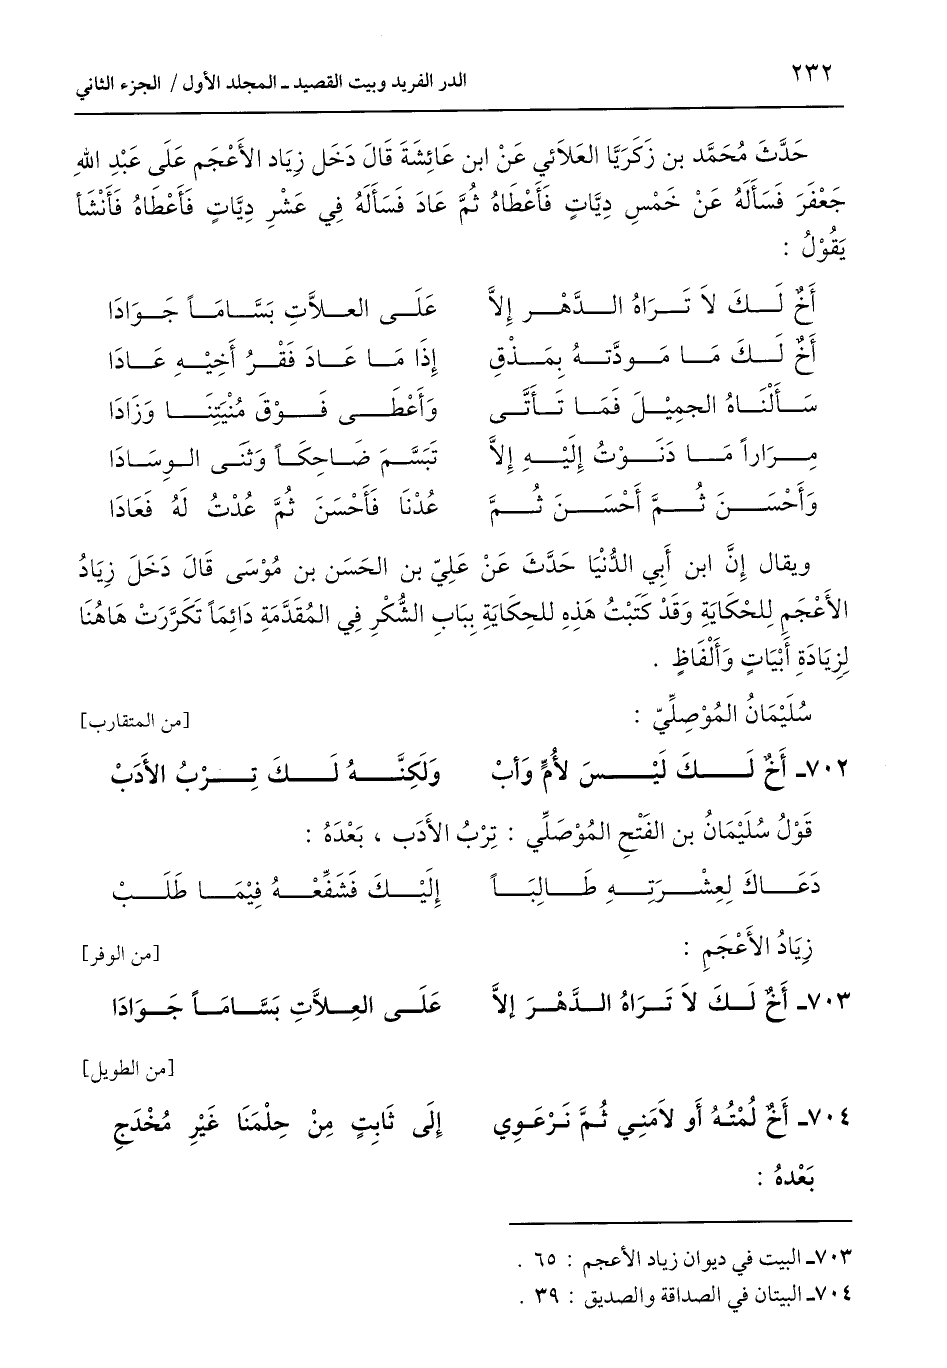 ٢٣٢
الدر الفريد وبيت القصيد ـ المجلد الأول / الجزء الثاني
حَدَّثَ مُحَمَّد بن زَكَرِيَّا العَلاَئي عَنْ ابن عَائِشَةَ قَالَ دَخَل زِيَاد الأَعْجَم عَلَى عَبْدِ اللهِ
جَعْفَرَ فَسَأَلَهُ عَنْ خَمْسِ دِيَّاتٍ فَأَعْطَاهُ ثُمَّ عَادَ فَسَأَلَهُ فِي عَشْرِ دِيَّاتٍ فَأَعْطَاهُ فَأَنْشَأَ
يَقُوْلُ :
أَخٌ لَكَ لاَ تَرَاهُ الدَّهْر إِلاَّ عَلَى العلاَّتِ بَسَّامَاً جَوَادَا
أَخٌ لَكَ مَا مَودَّتهُ بِمَذْقٍ إِذَا مَا عَادَ فَقْرُ أَخِيْهِ عَادَا
سَأَلْنَاهُ الجمِيْلَ فَمَا تَأَتَّى وَأَعْطَى فَوْقَ مُنْيَتِنَا وَزَادَا
مِرَاراً مَا دَنَوْتُ إِلَيْهِ إِلاَّ تَبَسَّمَ ضَاحِكَاً وَثَنَى الوِسَادَا
وَأَحْسَنَ ثُمَّ أَحْسَنَ ثُمَّ عُدْنَا فَأَحْسَنَ ثُمَّ عُدْتُ لَهُ فَعَادَا
ويقال إِنَّ ابن أَبِي الدُّنْيَا حَدَّثَ عَنْ عَلِيّ بن الحَسَن بن مُوْسَى قَالَ دَخَلَ زِيَادُ
الأَعْجَمِ لِلحْكَايَةِ وَقَدْ كَتَبْتُ هَذِهِ للحِكَايَةِ بِبَابِ الشُّكْرِ فِي المُقَدَّمَةِ دَائِمَاً تَكَرَّرَتْ هَاهُنَا
لِزِيَادَةِ أَبْيَاتٍ وَأَلْفَاظٍ .
سُلَيْمَانُ المُوْصِلِّيّ : [من المتقارب]
٧٠٢ـ أَخٌ لَكَ لَيْسَ لأُمٍّ وَأَبْ وَلَكِنَّهُ لَكَ تِرْبُ الأَدَبْ
قَوْلُ سُلَيْمَانُ بن الفَتْحِ المُوْصَلِّي : تِرْبُ الأَدَبِ ، بَعْدَهُ :
دَعَاكَ لِعِشْرَتِهِ طَالِبَاً إِلَيْكَ فَشَفِّعْهُ فِيْمَا طَلَبْ
زِيَادُ الأَعْجَمِ : [من الوفر]
٧٠٣ـ أَخٌ لَكَ لاَ تَرَاهُ الدَّهْرَ إلاَّ عَلَى العِلاَّتِ بَسَّامَاً جَوَادَا
[من الطويل]
٧٠٤ـ أَخٌ لُمْتُهُ أو لاَمَنِي ثُمَّ نَرْعَوِي إِلَى ثَابِتٍ مِنْ حِلْمَنَا غَيْرِ مُخْدَجِ
بَعْدهُ :
٧٠٣ـ البيت في ديوان زياد الأعجم : ٦٥ .
٧٠٤ـ البيتان في الصداقة والصديق : ٣٩ .